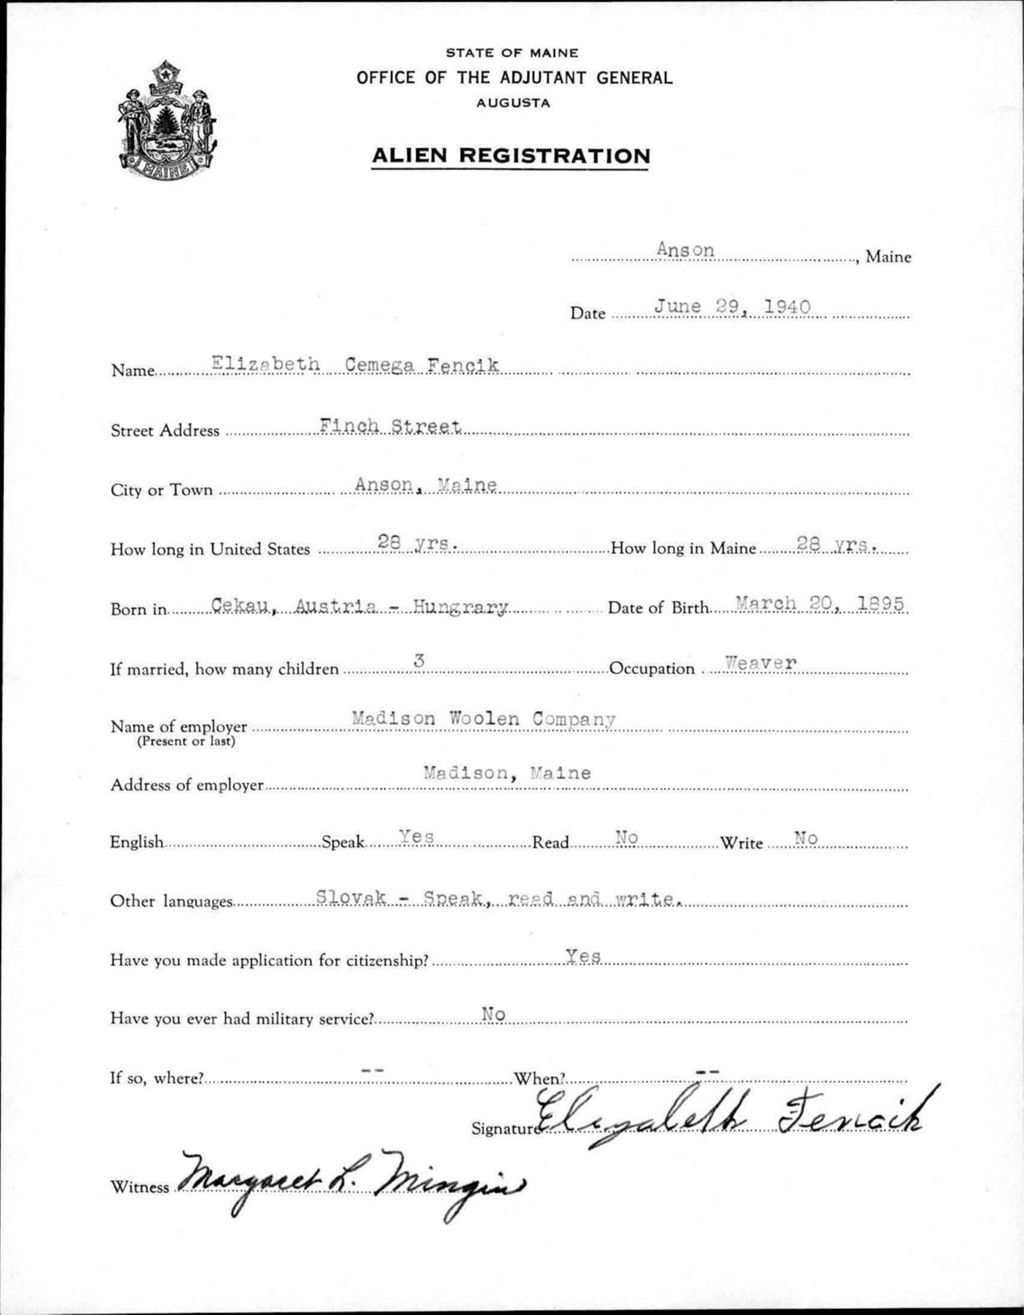 STATE OF MAINE
OFFICE OF THE ADJUTANT GENERAL
AUGUSTA
ALIEN REGISTRATION
MAINE
Anson, Maine
Date June 29, 1940
Name Elizabeth Cemega Fencik
Street Address Finch Street
City or Town Anson, Maine
How long in United States 28 yrs. How long in Maine 28 yrs.
Born in Cekau, Austria - Hungrary Date of Birth March 20, 1895
If married, how many children 3 Occupation Weaver
Name of employer Madison Woolen Company
(Present or last)
Address of employer Madison, Maine
English Speak Yes Read No Write No
Other languages Slovak - Speak, read and write.
Have you made application for citizenship? Yes
Have you ever had military service? No
If so, where? -- When? --
Signature Elizabeth Fencik
Witness Margaret L. Mingin